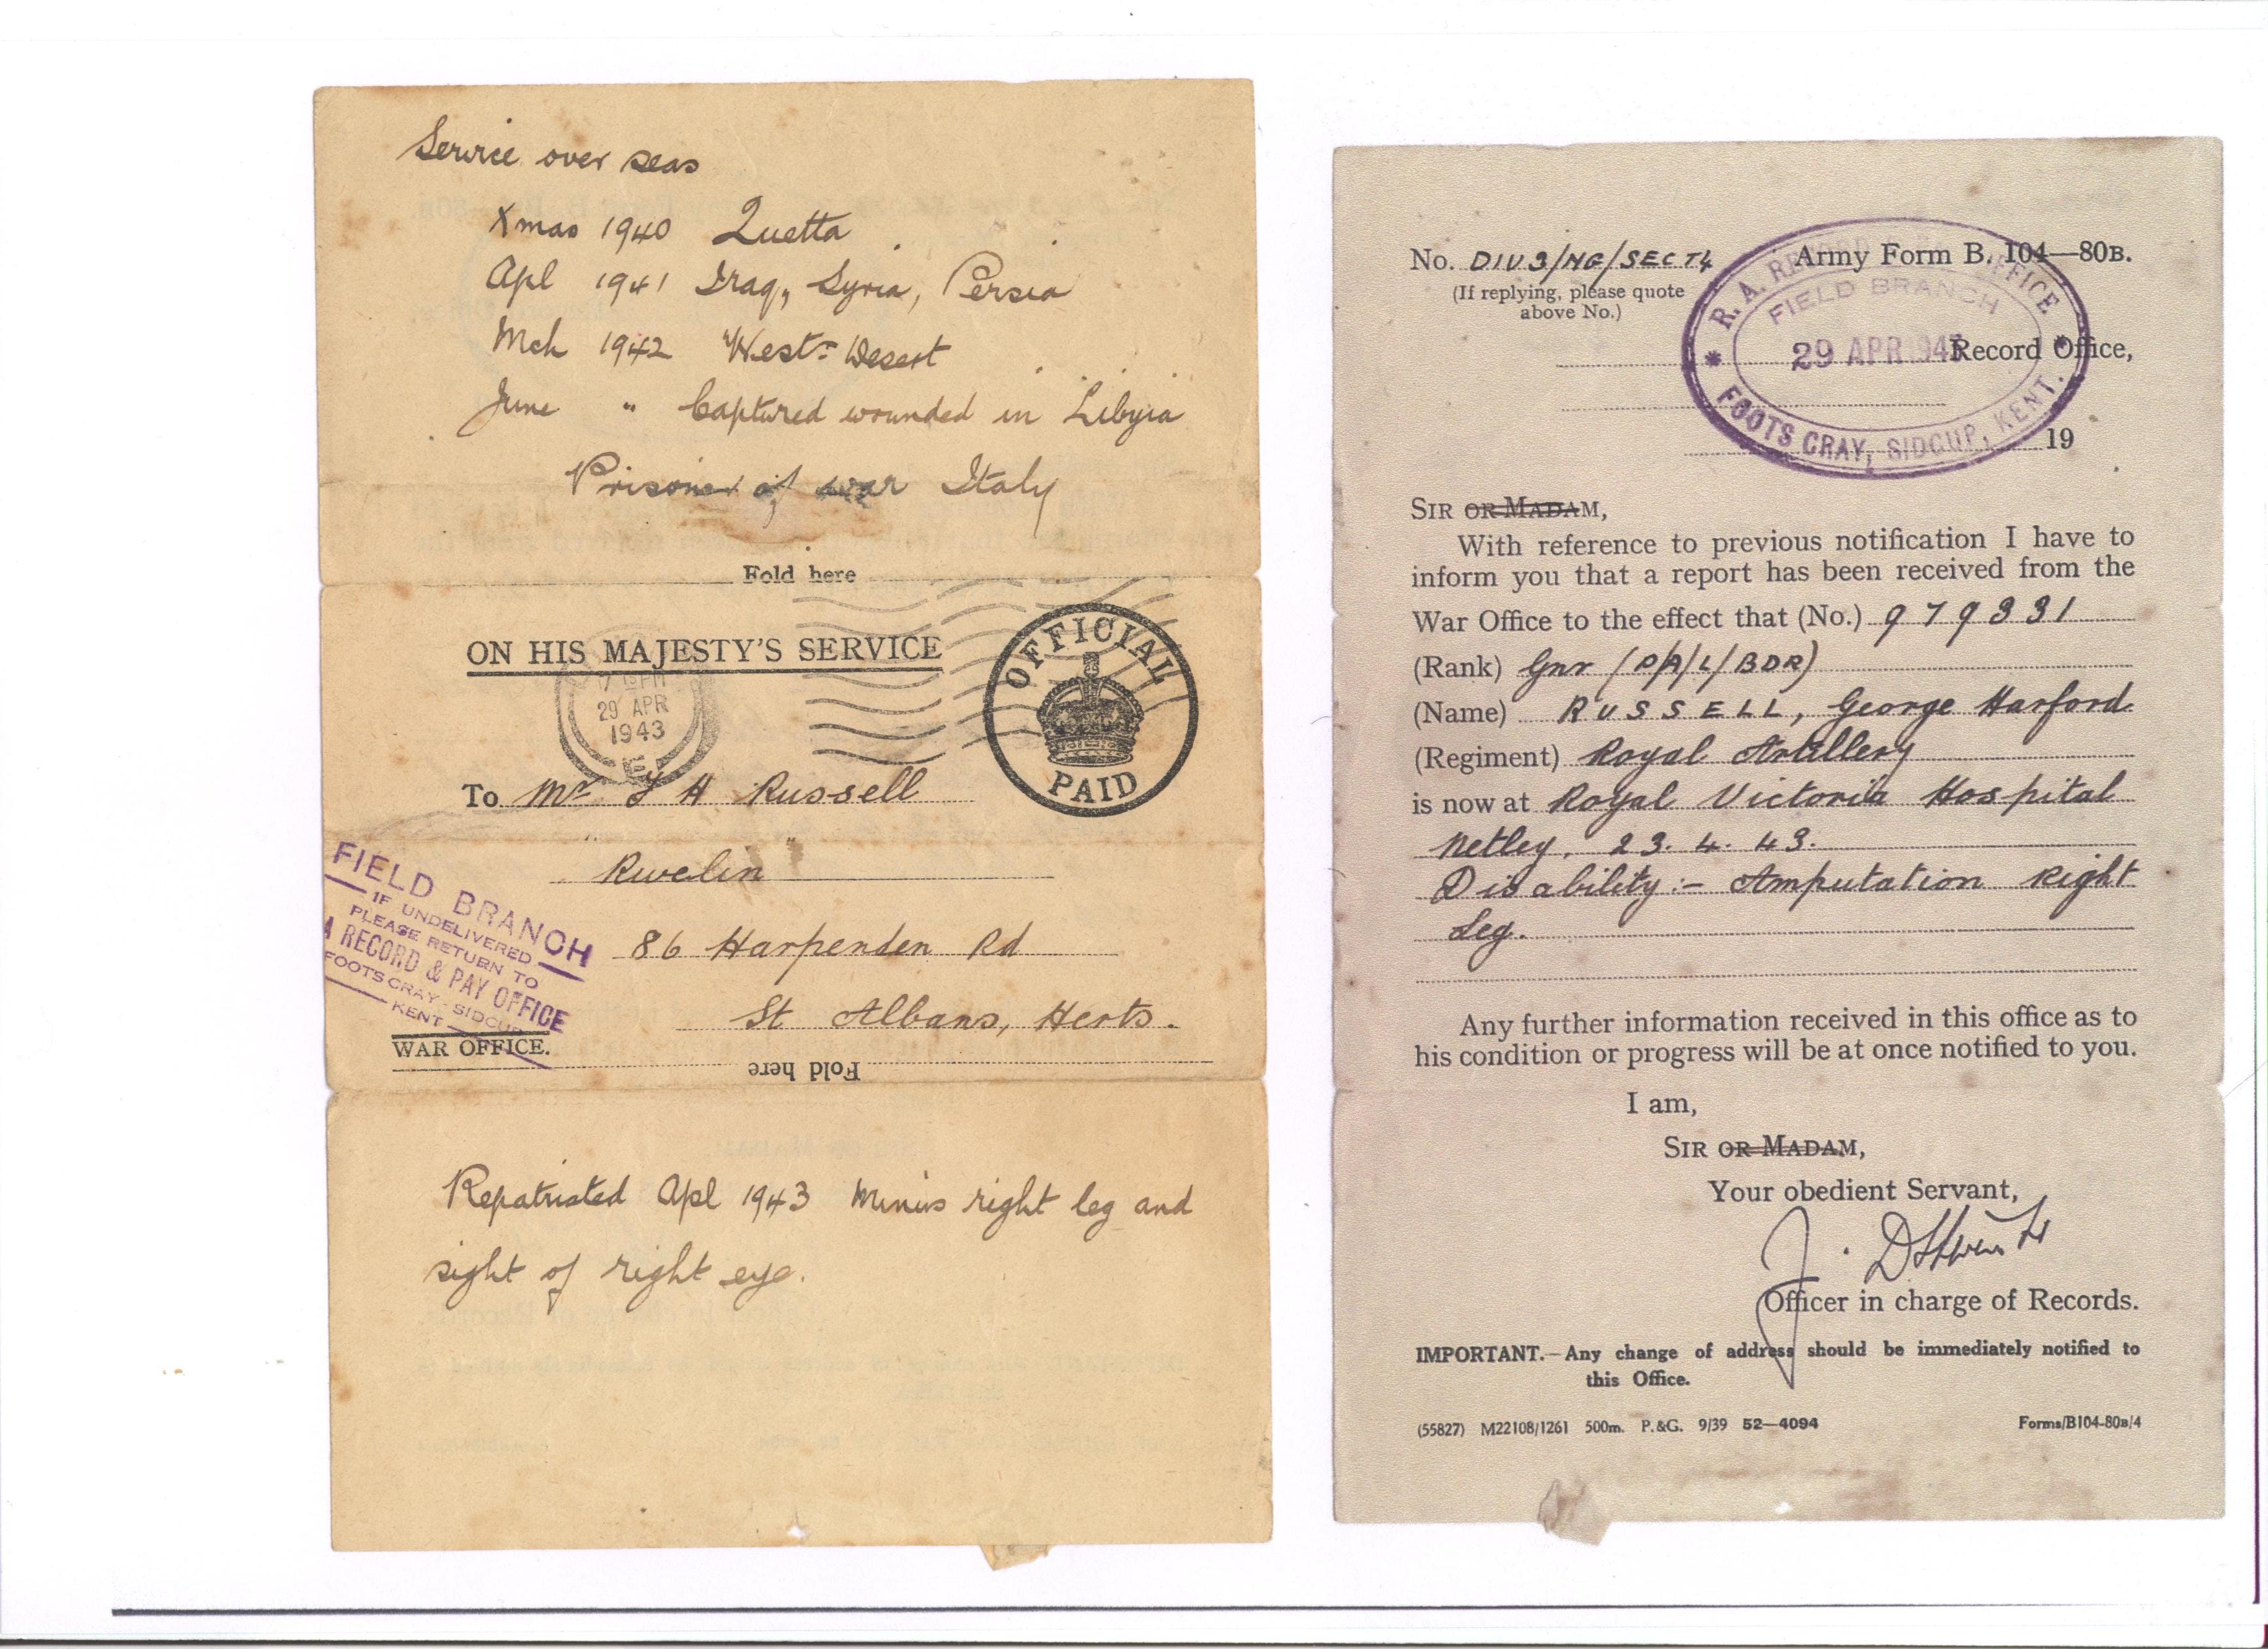 Service over seas
Xmas 1940 Quetta
Apl 1941 Iraq, Syria, Persia
Mch 1942 West: Desert
June " Captured wounded in Libyia
Prisoner of war Italy
Fold here
ON HIS MAJESTY'S SERVICE
OFFICIAL
PAID
29 APR
1943
E
To Mr. H Russell
" "
Rwelin
86 Harpenden Rd
St Albans, Herts.
FIELD BRANCH
IF UNDELIVERED
PLEASE RETURN TO
A RECORD & PAY OFFICE
FOOTSCRAY - SIDCUP
KENT
WAR OFFICE.
Fold here
Repatriated Apl 1943 Minus right leg and
sight of right eye.
No. DIV3/NG/SECT4 Army Form B. 104—80B.
(If replying, please quote
above No.)
R. A. RECORD OFFICE
FIELD BRANCH
29 APR 1943
FOOTS CRAY, SIDCUP, KENT.
Record Office,
19
SIR OR MADAM,
With reference to previous notification I have to
inform you that a report has been received from the
War Office to the effect that (No.) 979331
(Rank) Gnr (P/A/L/BDR)
(Name) RUSSELL, George Harford
(Regiment) Royal Artillery
is now at Royal Victoria Hospital
Netley. 23. 4. 43.
Disability:- Amputation Right
Leg.
Any further information received in this office as to
his condition or progress will be at once notified to you.
I am,
SIR OR MADAM,
Your obedient Servant,
Officer in charge of Records.
IMPORTANT.—Any change of address should be immediately notified to
this Office.
(55827) M22108/1261 500m. P.&G. 9/39 52—4094 Forms/B104-80B/4